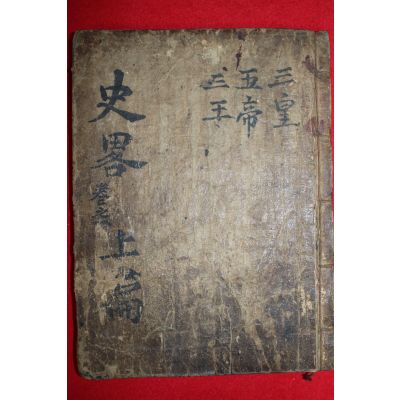 三皇
五帝
三王
史畧 卷之 上篇